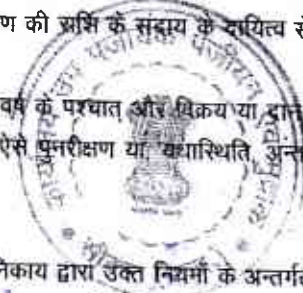 ण की राशि के संदाय के दायित्व से
वर्ष के पश्चात् और विक्रय या दान
ऐसे पुनरीक्षण या यथास्थिति, अन्त
निकाय द्वारा उक्त नियमों के अन्तर्गत